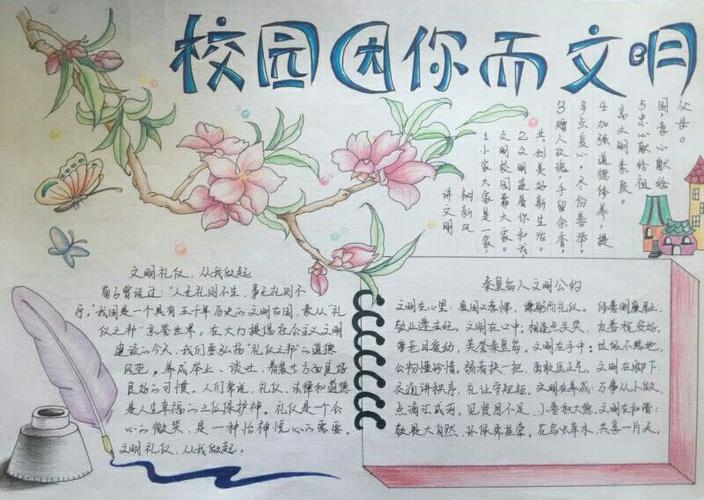 校园因你而文明
讲文明
树新风
1小家大家是一家,
文明校园靠大家。
2文明连着你和我
共创美好新生活。
3赠人玫瑰,手留余香,
多点爱心,冬份善举。
4加强道德修养,提
高文明素质。
5忠心献给祖
国,孝心献给
父母。
文明礼仪,从我做起
荀子曾说过:“人无礼则不生,事无礼则不
行。”我国是一个具有五千年历史的文明古国,素从“礼
仪之邦”享誉世界。在大力提倡社会主义文明
建设的今天,我们要弘扬“礼仪之邦”的道德
风范。养成举止、谈吐、着装等方面良好
良好的习惯。人们常说,礼仪、法律和道德
是人生幸福的三位保护神。礼仪是一个会
心的微笑,是一种怡神悦心的需要。
文明礼仪,从我做起。
秦皇岛人文明公约
文明在心里:爱国又 而礼仪。
敬业遵法纪。文明在口中:相逢点头笑,友善祝安好。
美誉秦皇岛。文明在手中:
公物懂珍惜,弱者扶一把, 文明在脚下:
交通讲秩序,礼让守规矩。文明在养成:万事从小做,
点滴汇成河,见贤思不足, 文明在和谐:
敬畏大自然,环保席捡荣。花鸟虫草木,共享一片天。